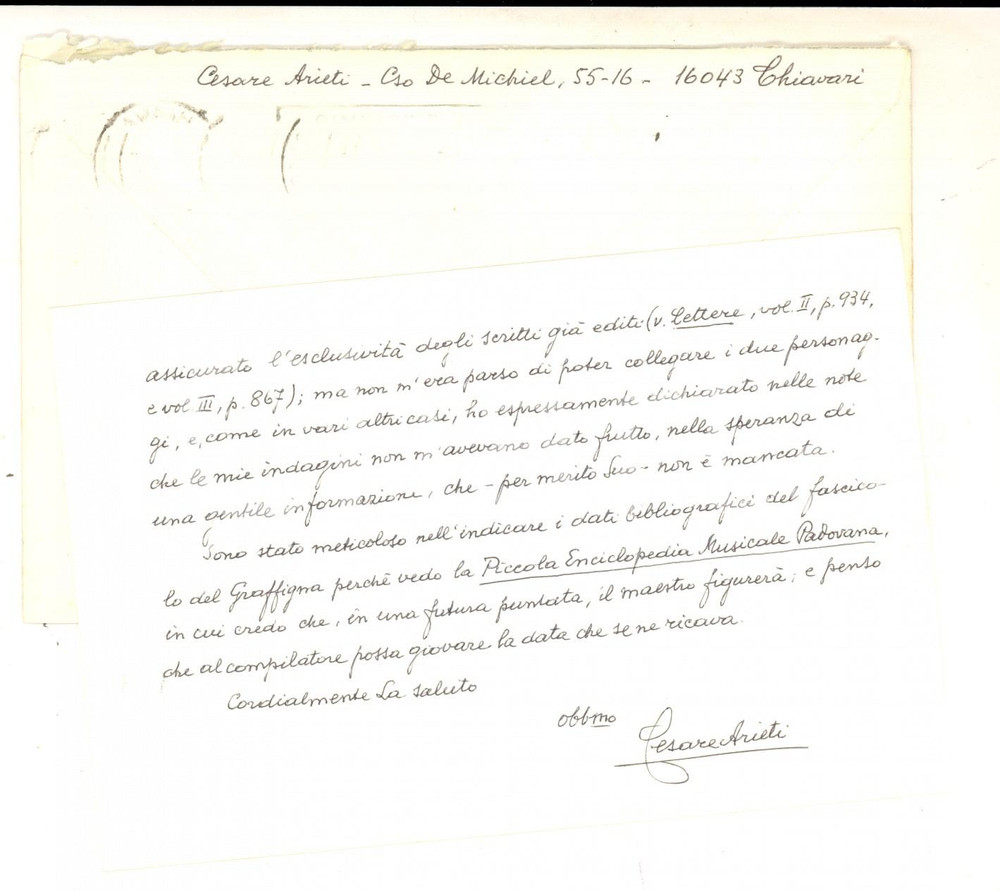 Cesare Arieti - Cso De Michiel, 55-16 - 16043 Chiavari
assicurato l'esclusività degli scritti già editi (v. Lettere, vol. II, p. 934,
e vol. III, p. 867); ma non m'era parso di poter collegare i due personag-
gi, e, come in vari altri casi, ho espressamente dichiarato nelle note
che le mie indagini non m'avevano dato frutto, nella speranza di
una gentile informazione, che - per merito Suo - non è mancata.
Sono stato meticoloso nell'indicare i dati bibliografici del fascico-
lo del Graffigna perchè vedo la Piccola Enciclopedia Musicale Padovana,
in cui credo che, in una futura puntata, il maestro figurerà; e penso
che al compilatore possa giovare la data che se ne ricava.
Cordialmente La saluto
obbmo
Cesare Arieti